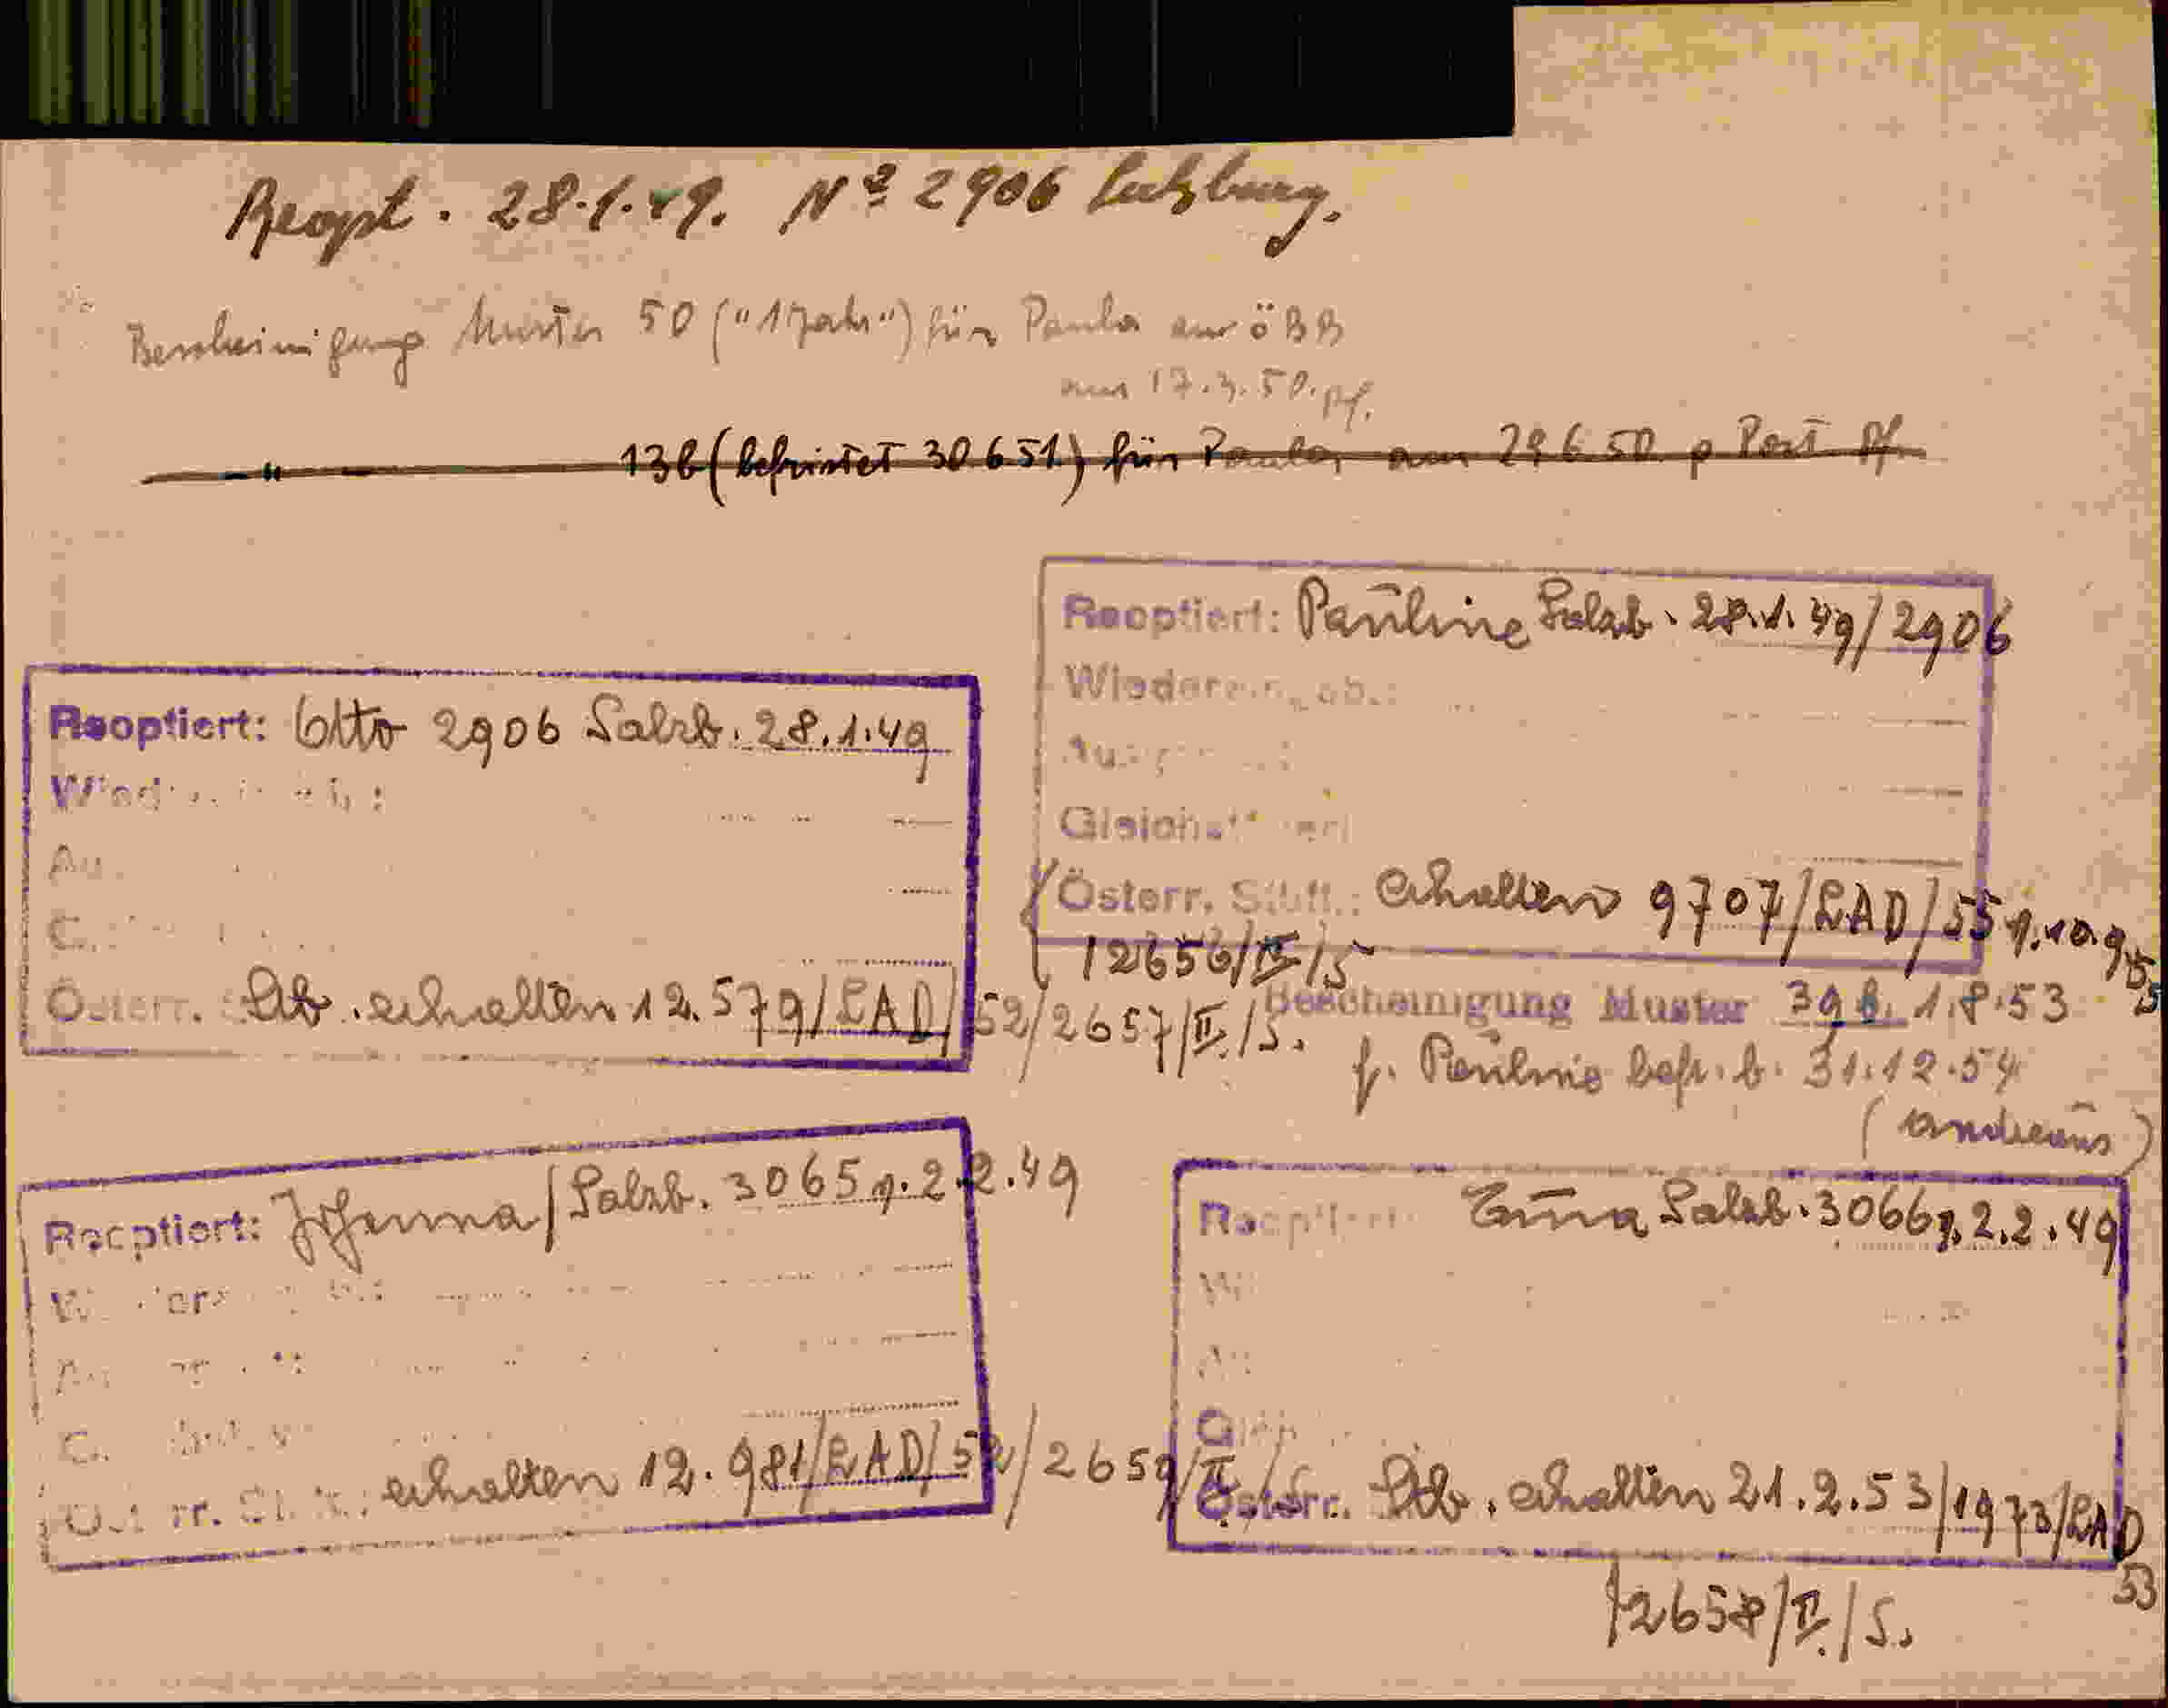 Reopt. 28.1.49. Nº 2906 Salzburg.
Bescheinigung Muster 50 ("1 Jahr") für Paula an öBB
am 17.3.50. Pf.
— " — 13b (befristet 30 6 51) für Paula am 29 6 50 p Post Pf
Reoptiert: Pauline Salzb. 28.1.49/2906
Österr. erhalten 9707/LAD/55 v. 10.9.55
12656/II/S
Reoptiert: Otto 2906 Salzb. 28.1.49
Österr. Stb. erhalten 12.579/LAD/52/2657/II./S.
Bescheinigung Muster 39 b. 1.8.53
f. Pauline befr. b. 31.12.54
Reoptiert: Johanna/Salzb. 3065 v. 2.2.49
erhalten 12.981/LAD/52/2659/II/S.
Salzb. 3066 v. 2.2.49
Österr. Stb. erhalten 21.2.53/1973/LAD
53
/2658/II./S.